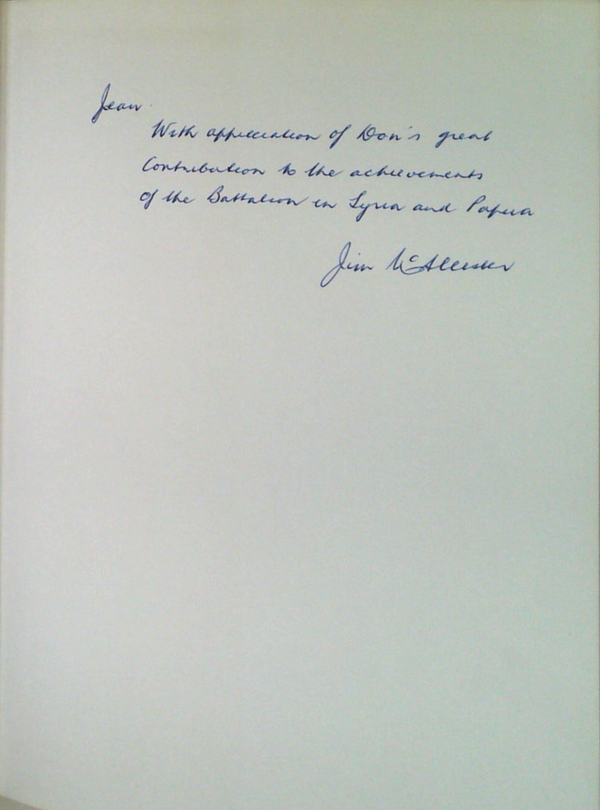 Jean
With appreciation of Don's great
Contribution to the achievements
of the Battalion in Syria and Papua
Jim McAllester